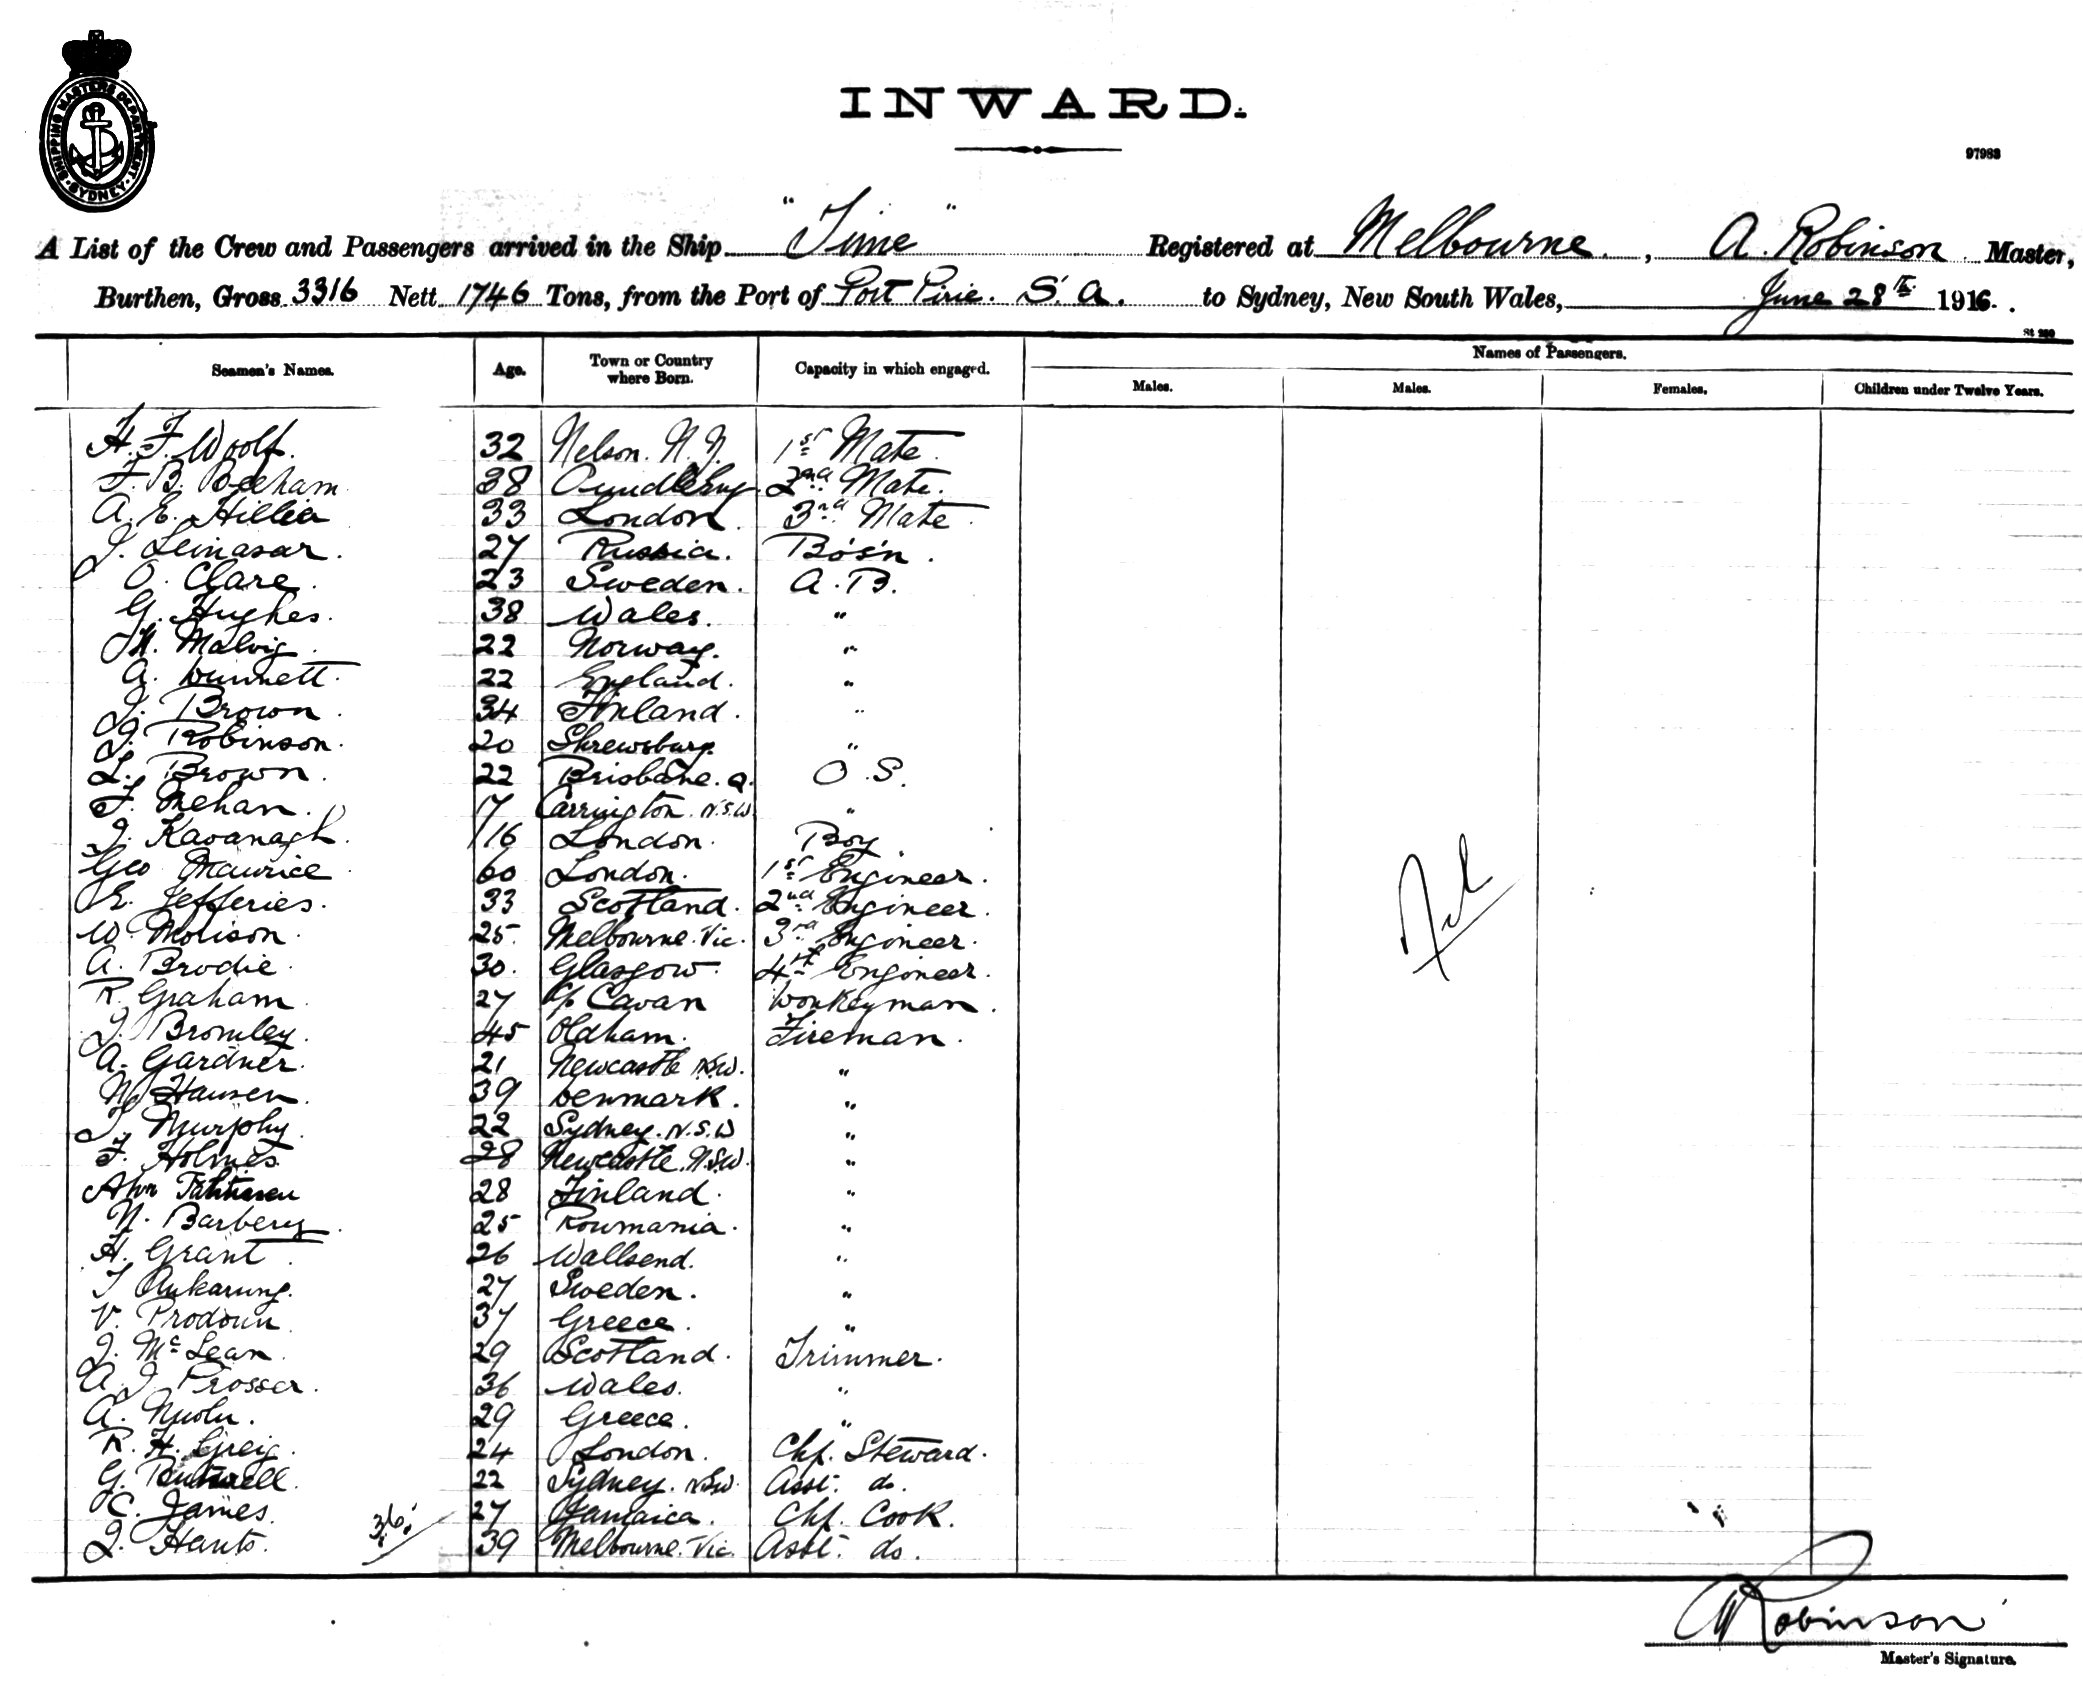 SHIPPING MASTERS DEPARTMENT · SYDNEY ·
INWARD.
97983
A List of the Crew and Passengers arrived in the Ship "Time" Registered at Melbourne, A. Robinson Master,
Burthen, Gross 3316 Nett 1746 Tons, from the Port of Port Pirie. S. A. to Sydney, New South Wales, June 28th 1916.
Seamen's Names. Age. Town or Country where Born. Capacity in which engaged. Names of Passengers.
Males. Males. Females. Children under Twelve Years.
H. F. Woolf. 32 Nelson. N. Z. 1st Mate
F. B. Beeham 38 2nd Mate.
A. E. Hillier 33 London. 3rd Mate
J. Leinasar. 27 Russia. Bos'n.
O. Clare. 23 Sweden. A. B.
G. Hughes. 38 Wales. "
H. Malvig. 22 Norway. "
A. Dunnett. 22 England. "
J. Brown. 34 Finland. "
J. Robinson. 20 Shrewsbury. "
L. Brown. 22 Brisbane. Q. O. S.
F. Mehan. 17 Carrington. N.S.W. "
J. Kavanagh. 16 London. Boy.
Geo Maurice. 60 London. 1st Engineer.
E. Jefferies. 33 Scotland. 2nd Engineer.
W. Morison. 25 Melbourne. Vic. 3rd Engineer.
A. Brodie. 30. Glasgow. 4th Engineer.
R. Graham. 27 Co Cavan Donkeyman.
J. Bromley. 45 Oldham. Fireman.
A. Gardner. 21 Newcastle N.S.W. "
N. Hansen. 39 Denmark. "
J. Murphy. 22 Sydney. N.S.W "
F. Holmes. 28 Newcastle. N.S.W. "
28 Finland. "
N. Barbery. 25 Roumania. "
H. Grant. 26 Wallsend. "
27 Sweden. "
V. Prodoun 37 Greece. "
J. McLean. 29 Scotland. Trimmer.
A. J. Prosser. 36 Wales. "
A. 29 Greece. "
R. H. Greig. 24 London. Chf. Steward.
G. 22 Sydney. N.S.W. Asst. do.
C. James. 27 Jamaica. Chf. Cook.
J. Hants. 36 39 Melbourne. Vic. Asst. do.
A Robinson
Master's Signature.